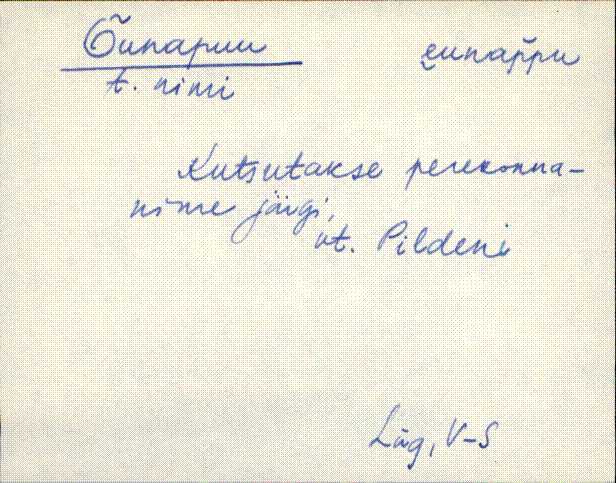 Õunapuu e̮unap̆pu
t. nimi
Kutsutakse perekonna-
nime järgi,
vt. Pildeni
Lüg, V-S